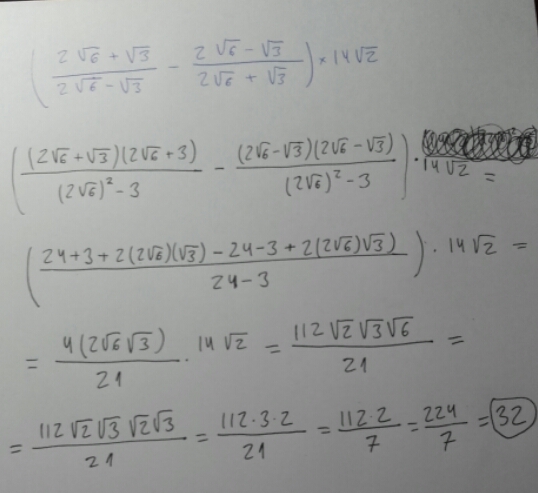 ( (2√6 + √3)/(2√6 - √3) - (2√6 - √3)/(2√6 + √3) ) × 14√2
( ((2√6 + √3)(2√6 + 3))/((2√6)² - 3) - ((2√6 - √3)(2√6 - √3))/((2√6)² - 3) ) · 14√2 =
( (24 + 3 + 2(2√6)(√3) - 24 - 3 + 2(2√6)√3)/(24 - 3) ) · 14√2 =
= (4(2√6√3))/21 · 14√2 = (112√2√3√6)/21 =
= (112√2√3√2√3)/21 = (112·3·2)/21 = (112·2)/7 = 224/7 = 32